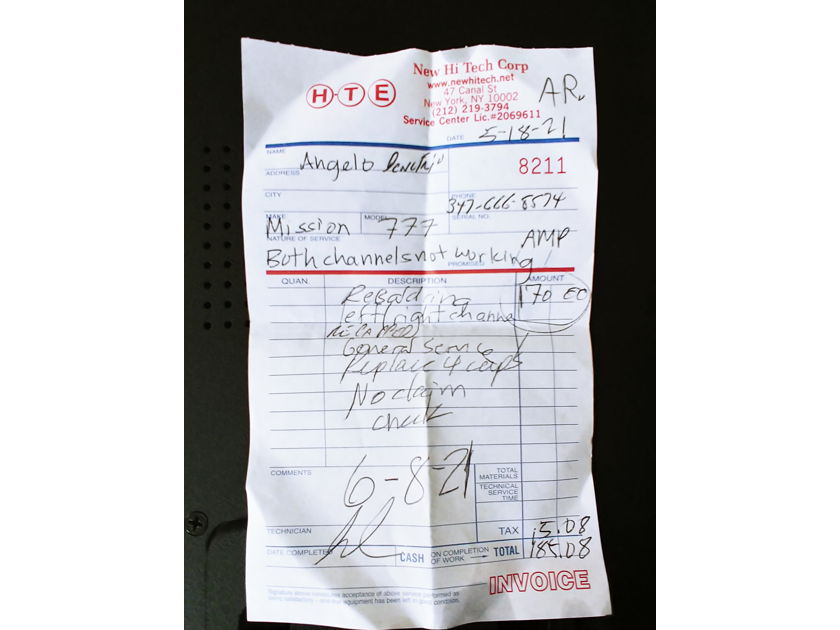 H-T-E
New Hi Tech Corp
www.newhitech.net
47 Canal St
New York, NY 10002
(212) 219-3794
Service Center Lic.#2069611
AR
DATE 5-18-21
NAME Angelo
8211
ADDRESS
CITY
PHONE 347-666-8574
MAKE Mission
MODEL 777
SERIAL NO.
AMP
NATURE OF SERVICE
Both channels not working
PROMISED
QUAN. DESCRIPTION AMOUNT
170
left/right channel
General Service
Replace 4 caps
No claim
check
6-8-21
COMMENTS
TOTAL MATERIALS
TECHNICAL SERVICE TIME
TECHNICIAN
TAX 15.08
DATE COMPLETED
CASH ON COMPLETION OF WORK TOTAL 185.08
INVOICE
Signature above constitutes acceptance of above service performed as
being satisfactory - and that equipment has been left in good condition.